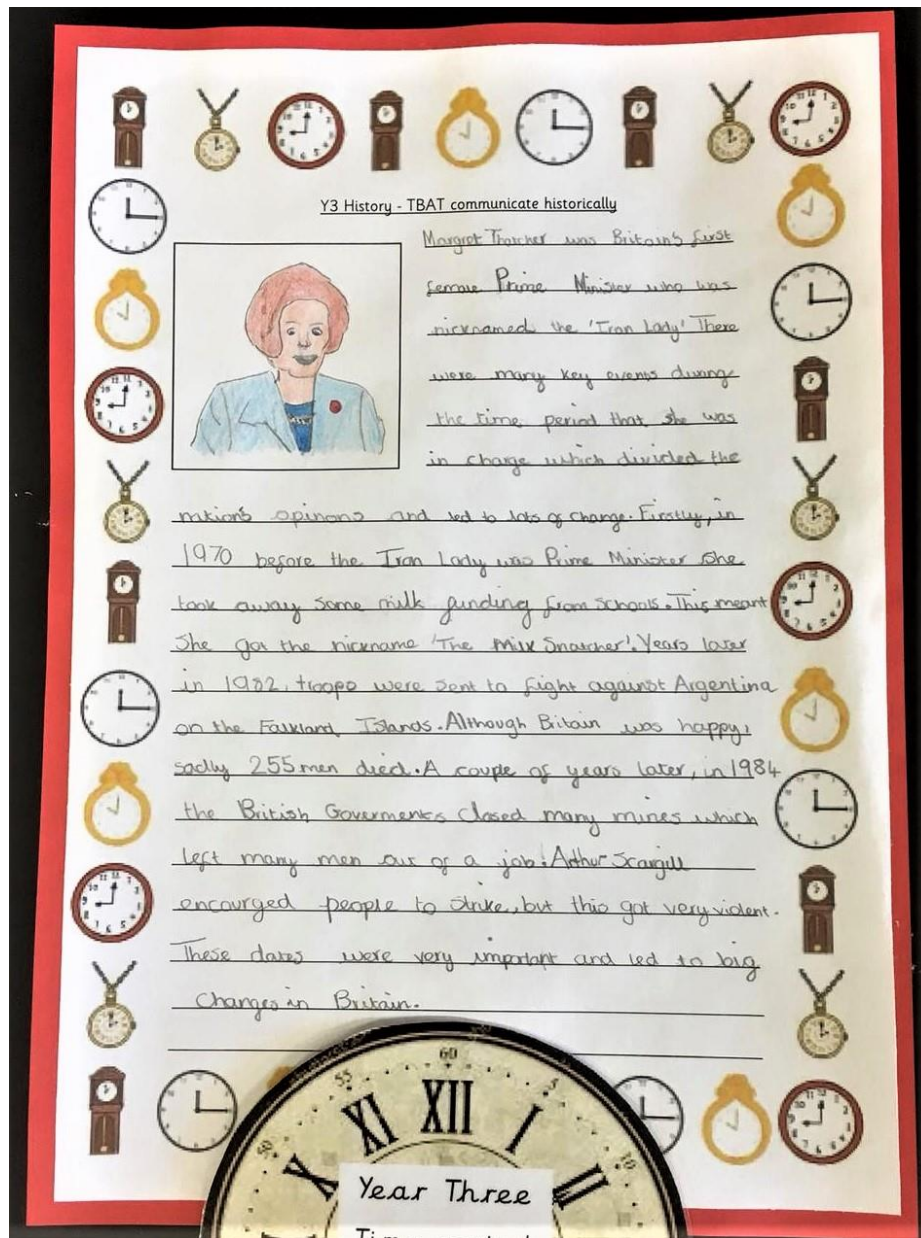 Y3 History - TBAT communicate historically
Margret Thatcher was Britain's first
female Prime Minister who was
nicknamed the 'Iron Lady' There
were many key events during
the time period that she was
in charge which divided the
nation's opinons and led to lots of change. Firstly, in
1970 before the Iron Lady was Prime Minister she
took away some milk funding from schools. This meant
she got the nickname 'The Milk Snatcher'. Years later
in 1982, troops were sent to fight against Argentina
on the Falkland Islands. Although Britain was happy,
sadly 255 men died. A couple of years later, in 1984
the British Goverments closed many mines which
left many men out of a job. Arthur Scargill
encourged people to strike, but this got very violent.
These dates were very important and led to big
changes in Britain.
60
55
5
50
10
XII
XI
I
X
II
Year Three